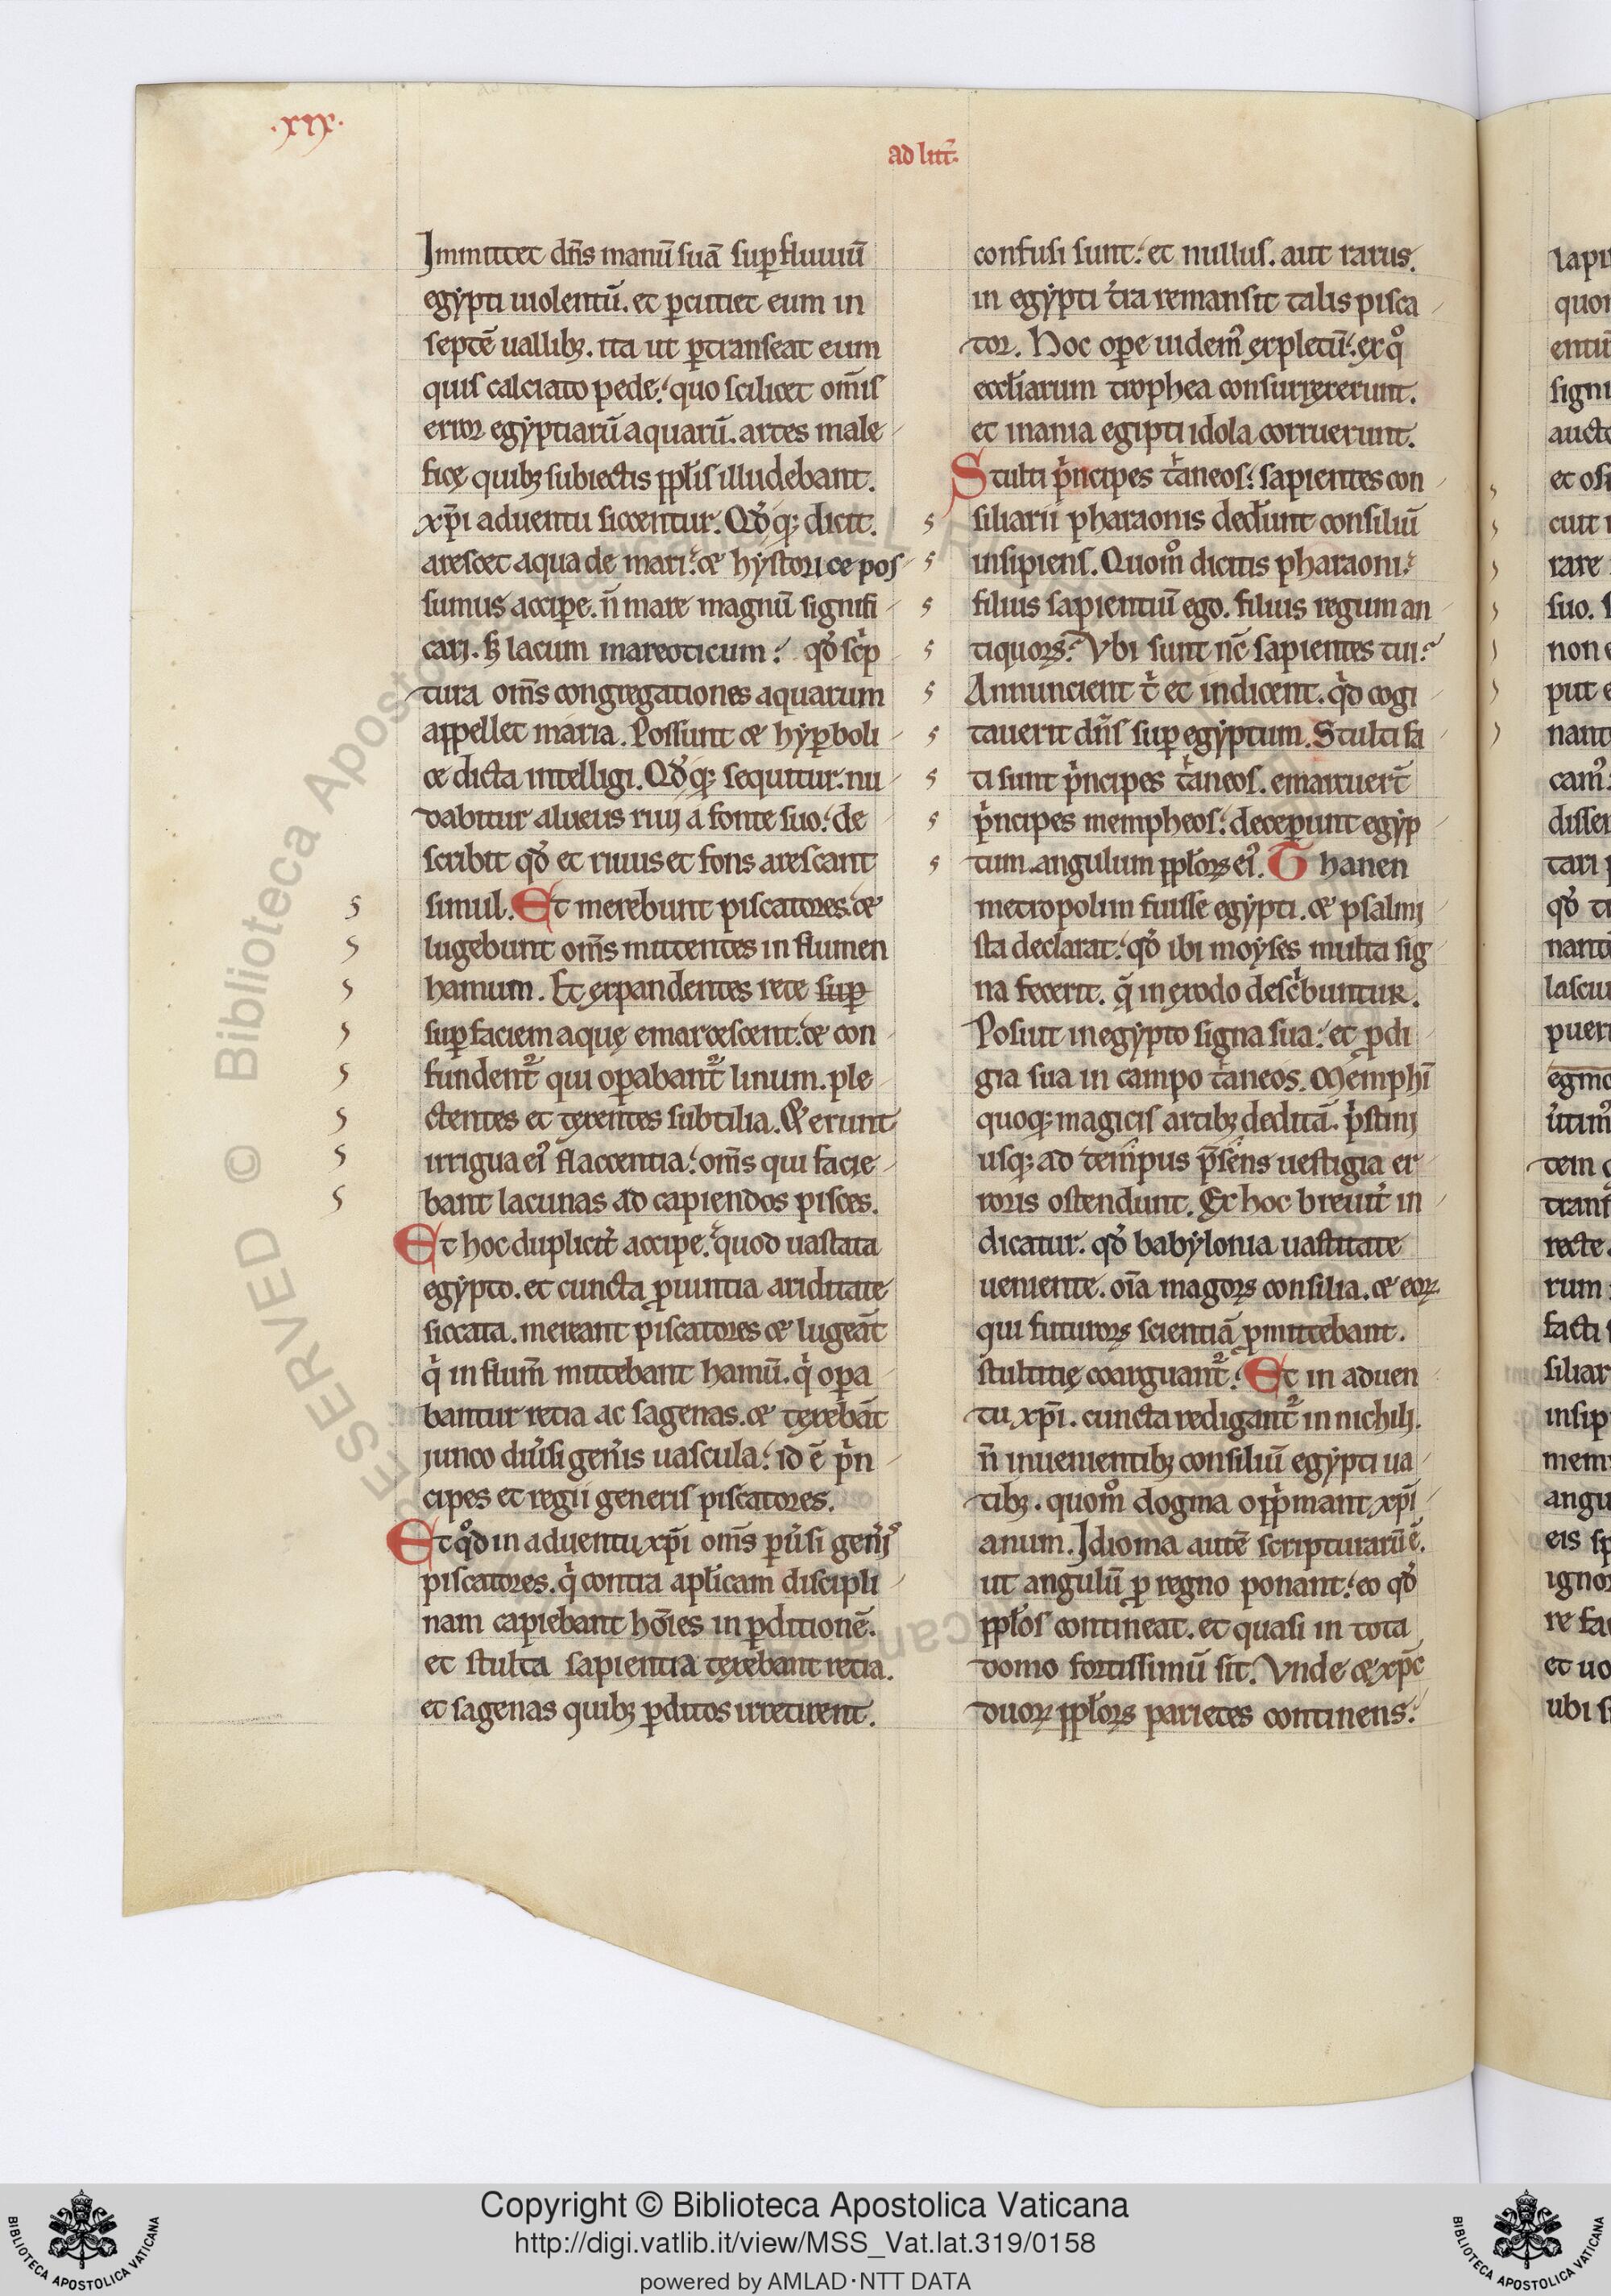 .xix.
ad litt̄.
Immittet dn̄s manū suā suꝑ fluuiū
egẏpti uiolentū. et ꝑcutiet eum in
septē uallibꝫ. ita ut ꝑtranseat eum
quis calciato pede. quo scilicet om̄is
error egẏptiarū aquarū. artes male
ficę quibꝫ subiectis ppl̄is illudebant.
xp̄i aduentu siccentur. Qd̓ qꝫ dicit.
arescet aqua de mari. & hẏstorice pos
sumus accipe. n̄ mare magnū signifi
cari. s; lacum mareoticum. qd̓ sc̓p
tura om̄s congregationes aquarum
appellet maria. Possunt & hẏꝑboli
ce dicta intelligi. Qd̓ qꝫ sequitur. nu
dabitur alueus riuj a fonte suo. de
scribit qd̓ et riuus et fons arescant
simul. Et merebunt piscatores. &
lugebunt om̄s mittentes in flumen
hamum. Et expandentes rete suꝑ
suꝑ faciem aquę emarcescent. & con
fundent᷑ qui oꝑabant᷑ linum. ple
ctentes et texentes subtilia. & erunt
irrigua ei᷒ flaccentia. om̄s qui facie
bant lacunas ad capiendos pisces.
Et hoc duplicit̓ accipe. quod uastata
egẏpto. et cuncta ꝓuintia ariditate
siccata. mereant piscatores & lugeāt
q̓ in flum̄ mittebant hamū. q̓ oꝑa
bantur retia ac sagenas. & texebāt
junco diu̓si gen̓is uascula. id ē p̓n
cipes et regii generis piscatores.
Et qd̓ in aduentu xp̄i om̄s ꝑu̓si gen̓j᷒
piscatores. q̓ contra apl̄icam discipli
nam capiebant hoīes in ꝑditionē.
et stulta sapientia texebant retia.
et sagenas quibꝫ ꝑditos irretirent.
confusi sunt. et nullus. aut rarus.
in egẏpti t̓ra remansit talis pisca
tor. Hoc oꝑe uidem᷒ expletū. ex q°
eccl̄iarum trophea consurrexerunt.
et inania egipti idola corruerunt.
Stulti p̓ncipes t̓aneos. sapientes con
siliarii pharaonis ded̄unt consiliū
insipiens. Quom° dicitis pharaoni.
filius sapientiū ego. filius regum an
tiquoꝝ. Vbi sunt nc̄ sapientes tui.
Annuncient t̓ et indicent. q̓d cogi
tauerit dn̄s suꝑ egẏptum. Stulti fa
ti sunt p̓ncipes t̓aneos. emarcuert̄
p̓ncipes mempheos. deceꝑunt egẏp
tum. angulum ppl̄oꝝ ei᷒. Thanen
metropolim fuisse egẏpti. & psalmi
sta declarat. qd̓ ibi moẏses multa sig
na fecerit. q̄ in exodo desc̓buntur.
Posuit in egẏpto signa sua. et ꝓdi
gia sua in campo t̓aneos. Memphī
quoqꝫ magicis artibꝫ deditā. p̓stinj
usqꝫ ad tempus p̄sens uestigia er
roris ostendunt. Et hoc breuit̓ in
dicatur. qd̓ babẏlonia uastitate
ueniente. oīa magoꝝ consilia. & eoꝝ.
qui futuroꝝ scientiā ꝓmittebant.
stultitię coarguant᷑. Et in aduen
tu xp̄i. cuncta redigant᷑ in nichili.
n̄ inuenientibꝫ consiliū egẏpti ua
tibꝫ. quom° dogma opp̓mant xp̄i
anum. Idioma autē scripturarū ē.
ut angulū ꝓ regno ponant. eo qd̓
ppl̄os contineat. et quasi in tota
domo fortissimū sit. Vnde & xp̄c
duoꝝ ppl̄oꝝ parietes continens.
Copyright © Biblioteca Apostolica Vaticana
http://digi.vatlib.it/view/MSS_Vat.lat.319/0158
powered by AMLAD·NTT DATA